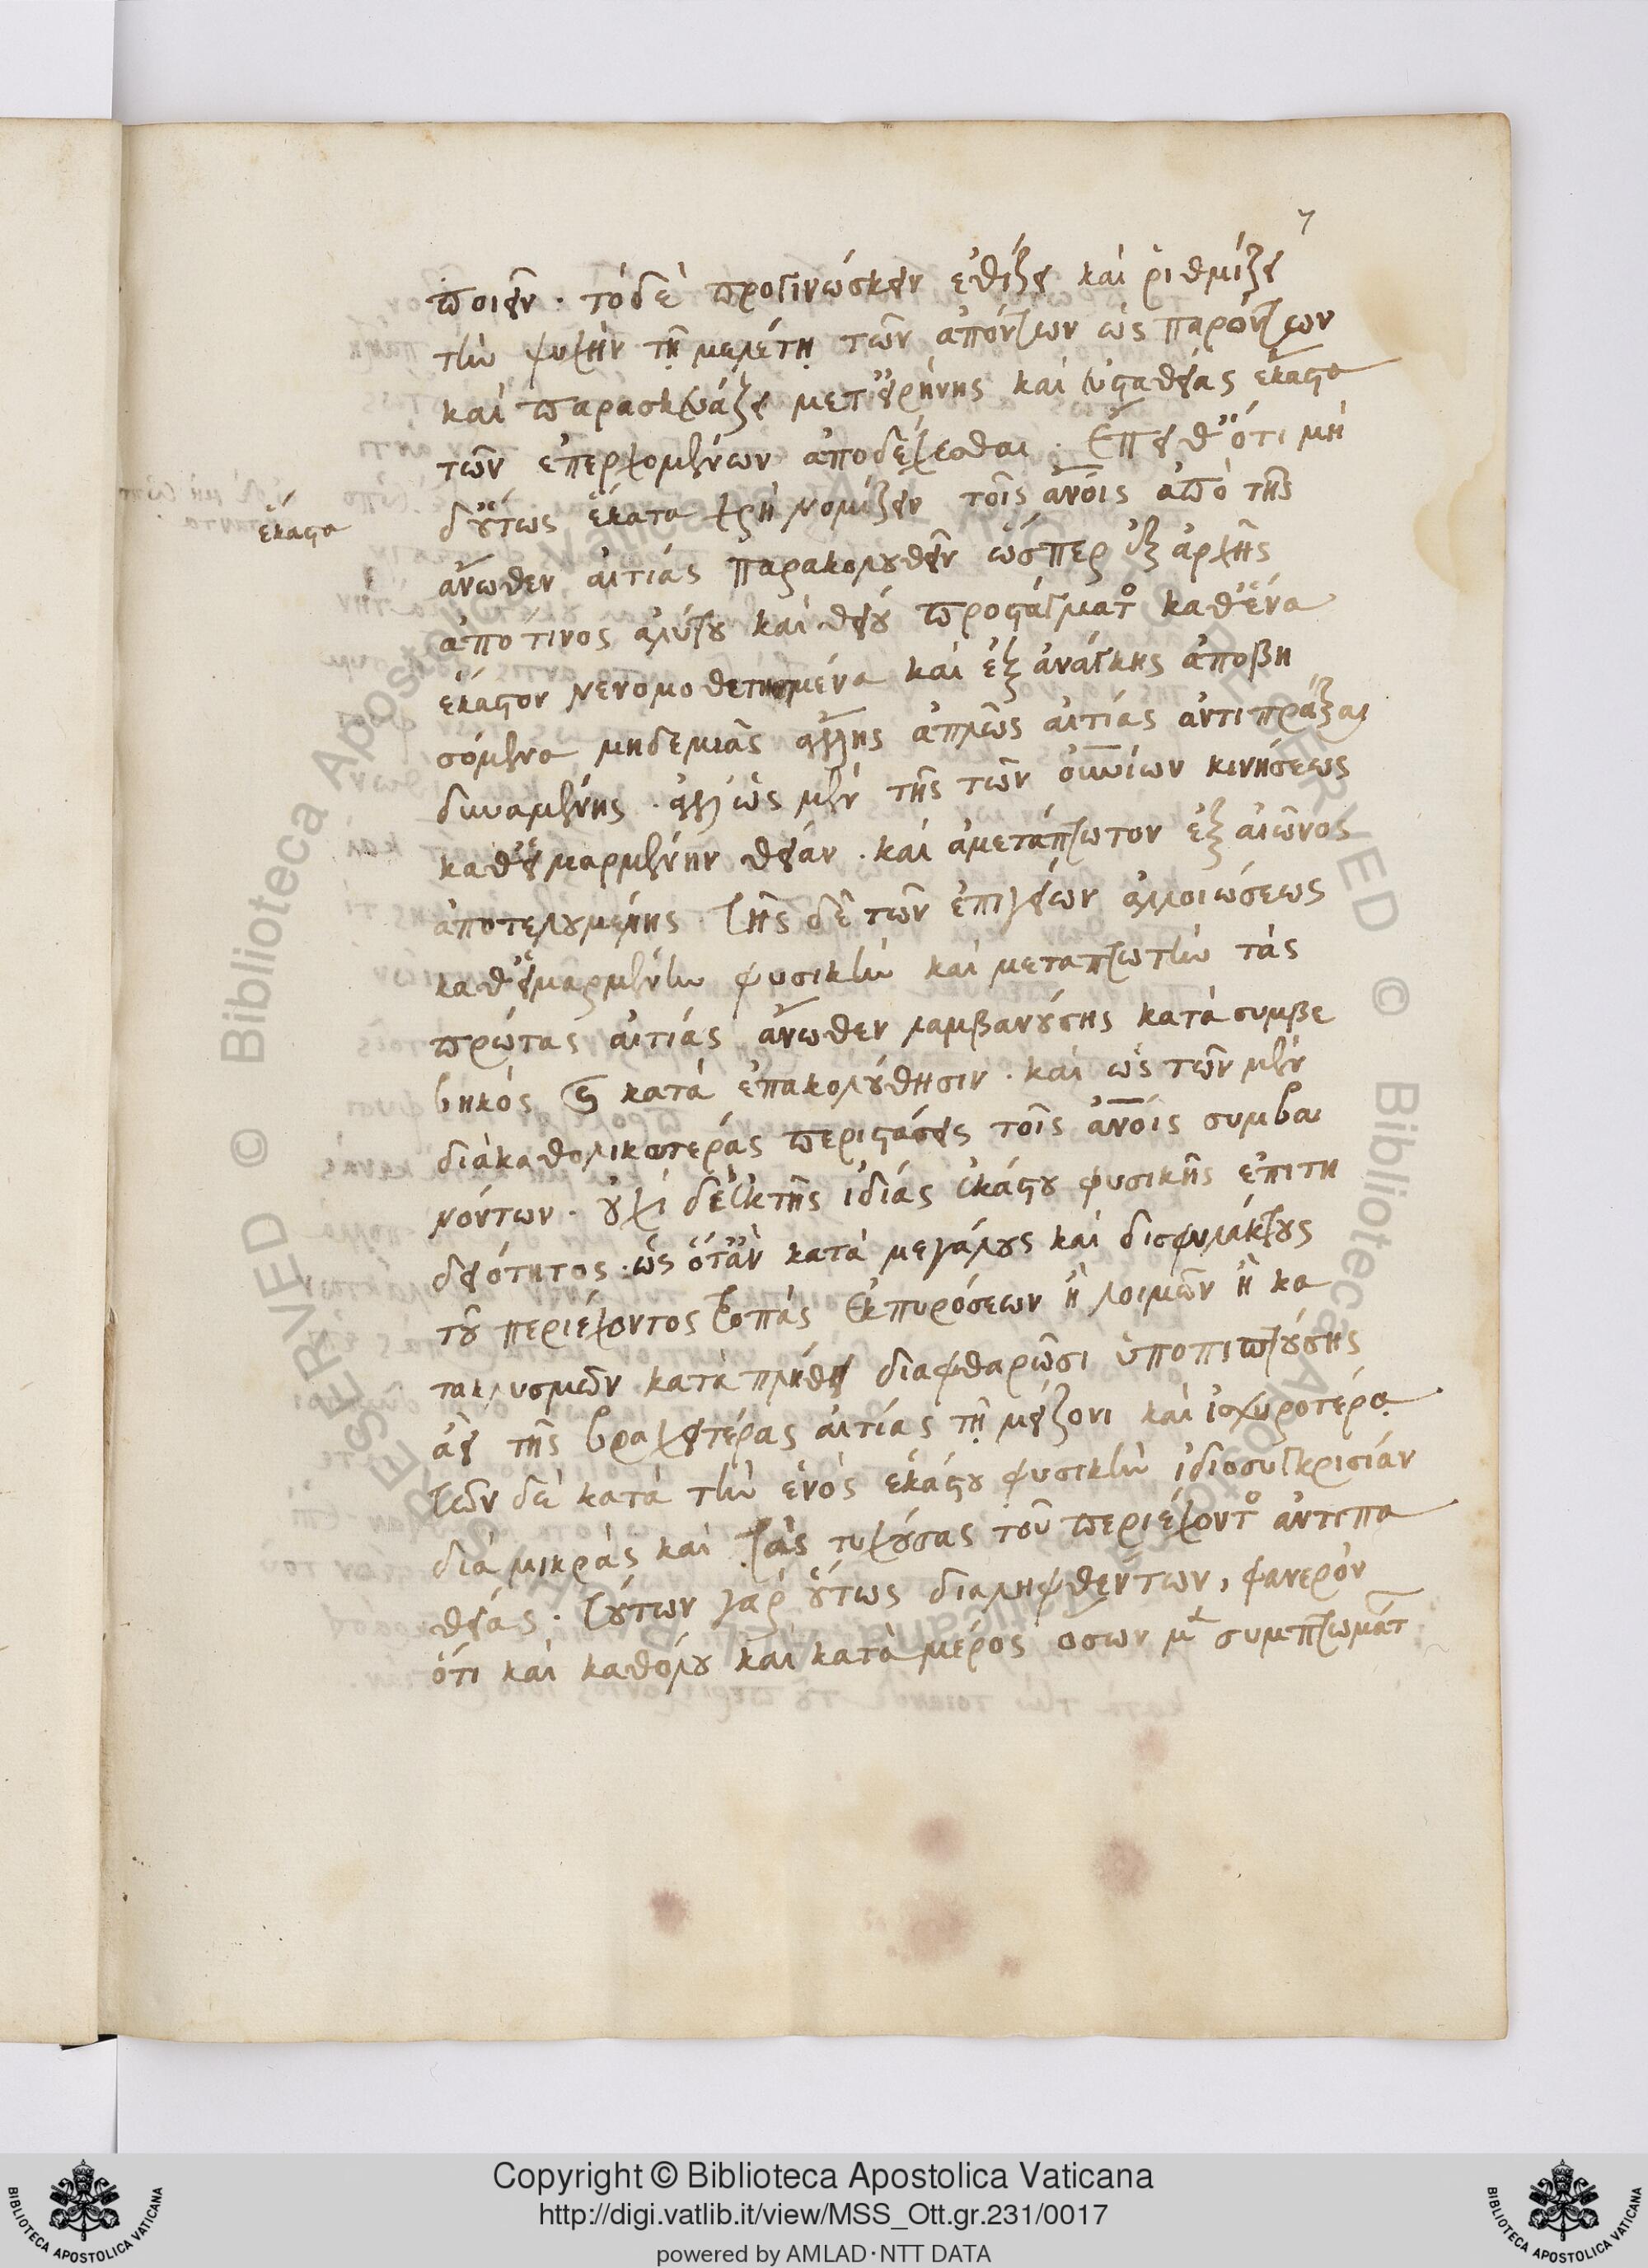 7
ποιεῖν · τόδὲ προγινώσκειν ἐθίζει καὶ ῥιθμίζει
τὴν ψυχὴν τῇ μελέτῃ τῶν ἀπόντων ὡς παρόντων
καὶ παρασκευάζει μετ' εἰρήνης καὶ εὐσταθείας ἕκαστα
τῶν ἐπερχομένων ἀποδέχεσθαι · Ἔπειθ' ὅτι μὴ
δ' οὕτως ἕκατα χρὴ νομίζειν τοῖς ἀνοις ἀπὸ τῆς
ἕκαστα
ἄνωθεν αἰτίας παρακολουθεῖν ὥσπερ ἐξ ἀρχῆς
ἀπό τινος ἀλύτου καὶ θείου προστάγματο καθ' ἕνα
ἕκαστον νενομοθετημένα καὶ ἐξ ἀνάγκης ἀποβη
σόμενα μηδεμιᾶς ἄλλης ἁπλῶς αἰτίας ἀντιπρᾶξαι
δυναμένης · ἀλλ' ὡς μὲν τῆς τῶν οὐνίων κινήσεως
καθ' εἱμαρμένην θείαν · καὶ ἀμετάπτωτον ἐξ αἰῶνος
ἀποτελουμένης · τῆς δὲ τῶν ἐπιγείων ἀλλοιώσεως
καθ' εἱμαρμένην φυσικὴν καὶ μεταπτωτὴν τὰς
πρώτας αἰτίας ἄνωθεν λαμβανούσης κατὰ συμβε
βηκός καὶ κατὰ ἐπακολούθησιν · καὶ ὡς τῶν μὲν
διὰ καθολικωτέρας περιστάσεις τοῖς ἀνοις συμβαι
νόντων · οὐχὶ δὲ ἐκ τῆς ἰδίας ἑκάστου φυσικῆς ἐπιτη
δειότητος · ὡς ὅτἂν κατὰ μεγάλους καὶ δισφυλάκτους
τοῦ περιέχοντος τροπὰς ἐκπυρόσεων ἢ λοιμῶν ἢ κα
τακλυσμῶν κατὰ πλήθη διαφθαρῶσι ὑποπιπτούσης
ἀεὶ τῆς βραχειτέρας αἰτίας τῇ μείζονι καὶ ἰσχυροτέρᾳ ·
τῶν δὲ κατὰ τὴν ἑνὸς ἑκάστου φυσικὴν ἰδιοσυγκρισίαν
διὰ μικρὰς καὶ τὰς τυχούσας τοῦ περιέχοντο ἀντιπα
θείας · τούτων γὰρ οὕτως διαληφθέντων, φανερὸν
ὅτι καὶ καθόλου καὶ κατὰ μέρος ὅσων μ συμπτωμάτ
Copyright © Biblioteca Apostolica Vaticana
http://digi.vatlib.it/view/MSS_Ott.gr.231/0017
powered by AMLAD·NTT DATA
BIBLIOTECA APOSTOLICA VATICANA
BIBLIOTECA APOSTOLICA VATICANA